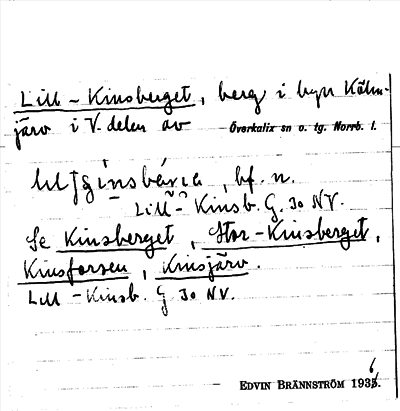 Lill-Kinsberget, berg i byn Kälm-
järv i V. delen av Överkalix sn o. tg. Norrb. l.
bf. n.
Lill-Kinsb. G. 30 NV.
Se Kinsberget, Stor-Kinsberget,
Kinsforsen, Kinsjärv.
Lill-Kinsb. G 30 NV.
EDVIN BRÄNNSTRÖM 1936.